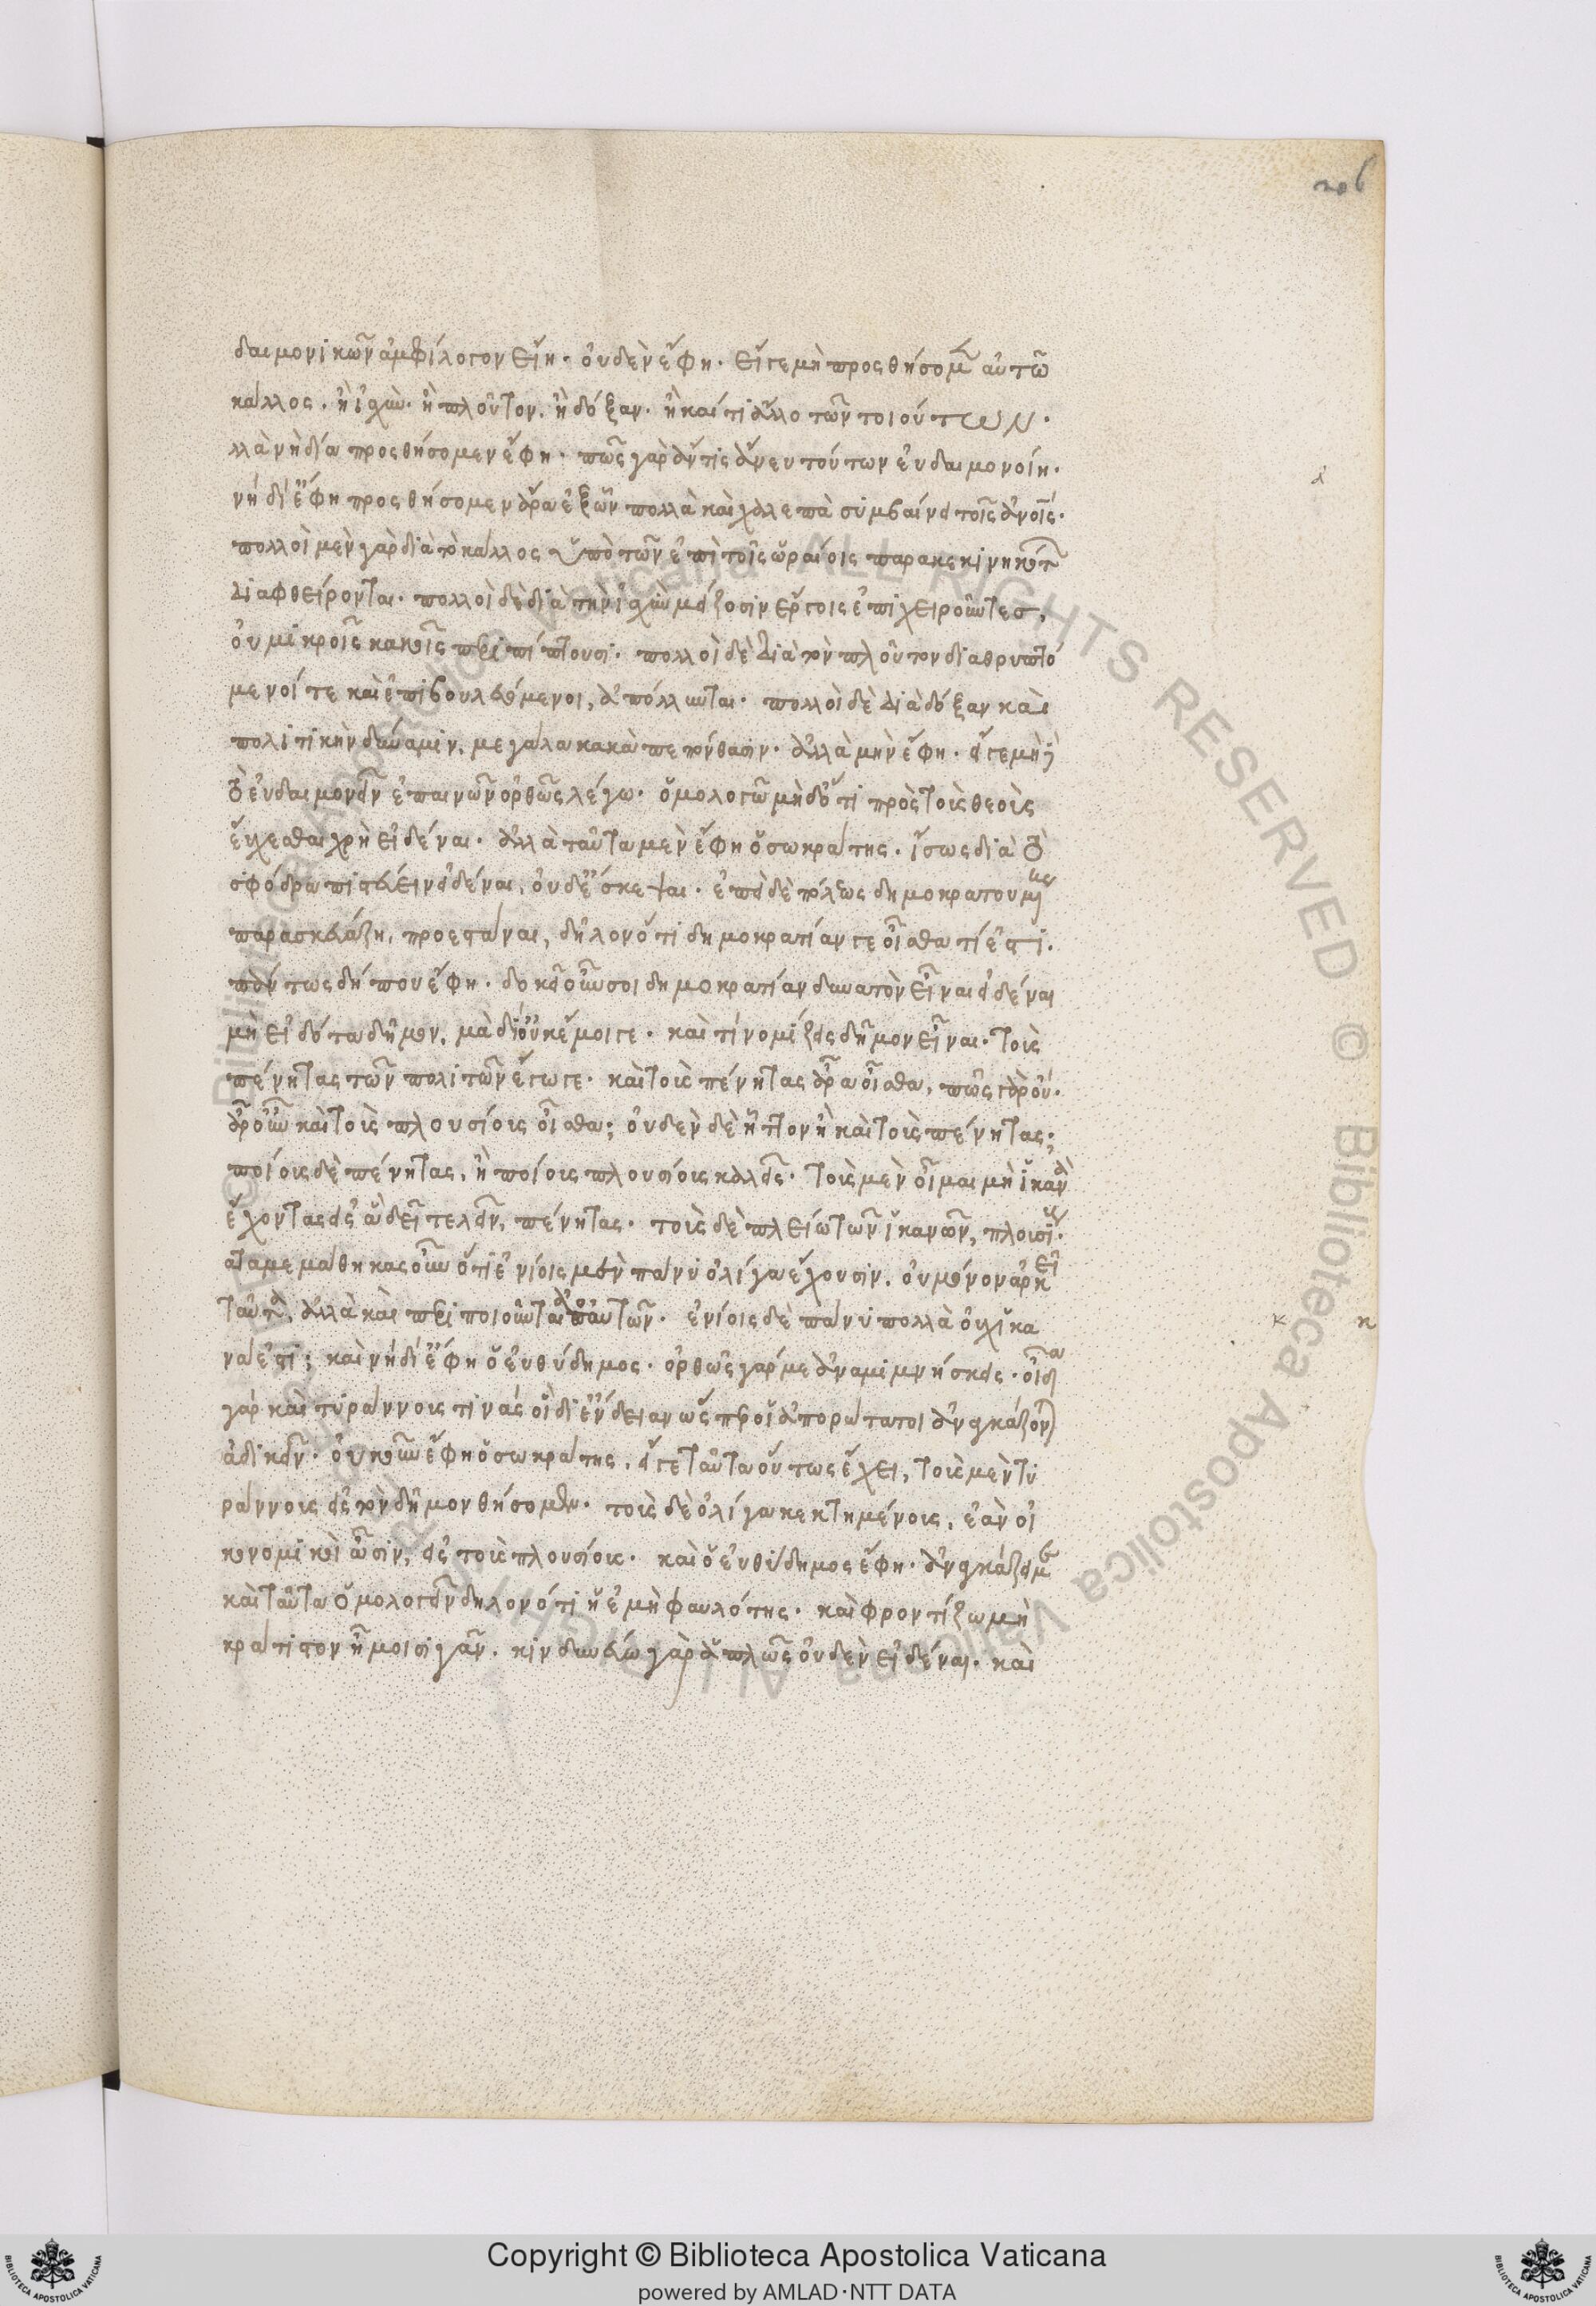 206
δαιμονικῶν ἀμφίλογον εἴη. οὐδὲν ἔφη. εἴγε μὴ προσθήσομεν αὐτῶ
κάλλος. ἢ ἰσχὺν. ἢ πλοῦτον. ἢ δόξαν. ἢ καί τι ἄλλο τῶν τοιούτων.
λλὰ νὴ δία προσθήσομεν ἔφη. πῶς γὰρ ἄν τις ἄνευ τούτων εὐδαιμονοίη.
νὴ δί ἔφη προσθήσομεν ἄρα ἐξ ὧν πολλὰ καὶ χαλεπὰ συμβαίνει τοῖς ἀνοις.
πολλοὶ μὲν γὰρ διὰ τὸ κάλλος ὑπὸ τῶν ἐπὶ τοῖς ὡραίοις παρακεκινηκότ
διαφθείρονται. πολλοὶ δὲ διὰ τὴν ἰσχὺν μείζοσιν ἔργοις ἐπιχειροῦντες,
οὐ μικροῖς κακοῖς περιπίπτουσι. πολλοὶ δὲ διὰ τὸν πλοῦτον διαθρυπτό
μενοί τε καὶ ἐπιβουλευόμενοι, ἀπόλλυνται. πολλοὶ δὲ διὰ δόξαν καὶ
πολιτικὴν δύναμιν, μεγάλα κακὰ πεπόνθασιν. ἀλλὰ μὴν ἔφη. εἴγε μηδὲ
τὸ εὐδαιμονεῖν ἐπαινῶν ὀρθῶς λέγω. ὁμολογῶ μὴδ ὅ τι πρὸς τοὺς θεοὺς
εὔχεσθαι χρὴ εἰδέναι. ἀλλὰ ταῦτα μὲν ἔφη ὁ σωκράτης. ἴσως διὰ τὸ
σφόδρα πιστεύειν εἰδέναι, οὐδ ἔσκεψαι. ἐπεὶ δὲ πόλεως δημοκρατουμένης
παρασκευάζη, προεστάναι, δῆλον ὅτι δημοκρατίαν γε οἶσθα τί ἐστι.
πάντως δήπου ἔφη. δοκεῖ οὖν σοι δημοκρατίαν δυνατὸν εἶναι εἰδέναι
μὴ εἰδότα δῆμον, μὰ δί οὐκ ἔμοιγε. καὶ τί νομίζεις δῆμον εἶναι. τοὺς
πένητας τῶν πολιτῶν ἔγωγε. καὶ τοὺς πένητας ἄρα οἶσθα, πῶς γὰρ οὔ.
ἆρ οὖν καὶ τοὺς πλουσίους οἶσθα; οὐδὲν δὲ ἧττον ἢ καὶ τοὺς πένητας;
ποίους δὲ πένητας, ἢ ποίους πλουσίους καλεῖς. τοὺς μὲν οἶμαι μὴ ἱκανὰ
ἔχοντας εἰς ἃ δεῖ τελεῖν, πένητας. τοὺς δὲ πλείω τῶν ἱκανῶν, πλουσίους.
καταμεμάθηκας οὖν ὅτι ἐνίοις μὲν πάνυ ὀλίγα ἔχουσιν, οὐ μόνον ἀρκεῖ
ταῦτα, ἀλλὰ καὶ περιποιοῦνται ἀπ αὐτῶν. ἐνίοις δὲ πάνυ πολλὰ οὐχ ἱκα
νά ἐστι; καὶ νὴ δί ἔφη ὁ εὐθύδημος. ὀρθῶς γάρ με ἀναμιμνήσκεις. οἶδα
γὰρ καὶ τυράννους τινάς οἳ δι ἔνδειαν ὥσπερ οἱ ἀπορώτατοι ἀναγκάζονται
ἀδικεῖν. οὐκοῦν ἔφη ὁ σωκράτης, εἴγε ταῦτα οὕτως ἔχει, τοὺς μὲν τυ
ράννους εἰς τὸν δῆμον θήσομεν. τοὺς δὲ ὀλίγα κεκτημένους, ἐὰν οἰ
κονομικοὶ ὦσιν, εἰς τοὺς πλουσίους. καὶ ὁ εὐθύδημος ἔφη. ἀναγκάζει με
καὶ ταῦτα ὁμολογεῖν δηλονότι ἡ ἐμὴ φαυλότης. καὶ φροντίζω μὴ
κράτιστον ἦ μοι σιγᾶν. κινδυνεύω γὰρ ἁπλῶς οὐδὲν εἰδέναι. καὶ
© Biblioteca Apostolica Vaticana ALL RIGHTS RESERVED
Copyright © Biblioteca Apostolica Vaticana
powered by AMLAD·NTT DATA